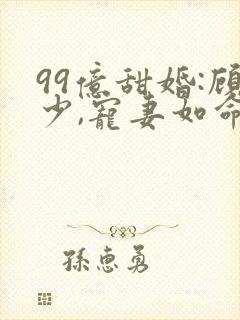 99億甜婚:顾
少,寵妻如命
孫惠勇